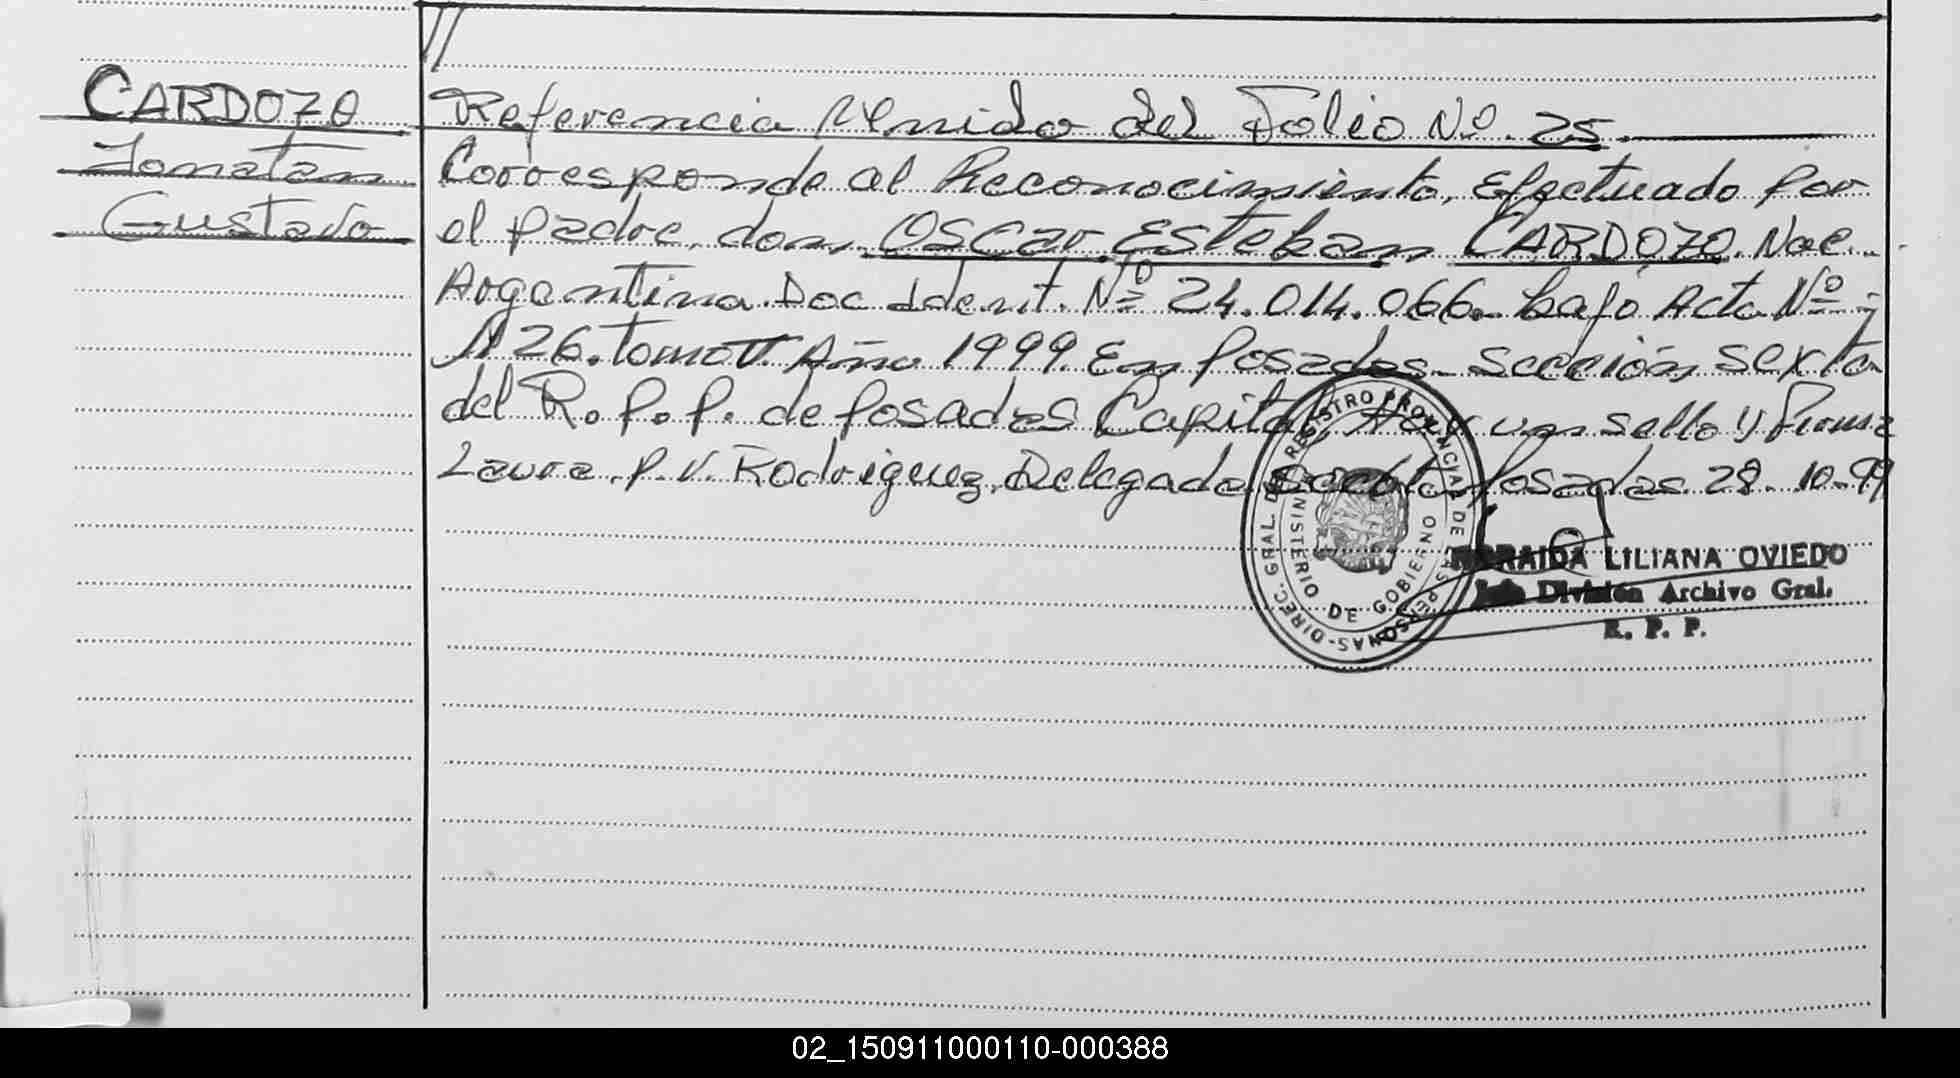 //
CARDOZO
Jonatan
Gustavo
Referencia Venido del Folio Nº 25.
Corresponde al Reconocimiento, Efectuado Por
el padre, don, Oscar Esteban CARDOZO. Nac.
Argentina. Doc Ident. Nº 24.014.066. bajo Acta Nº
126. tomo II Año 1999. En Posadas. Sección Sexta
del R. P. P. de Posadas Capital, Hay un sello y Firma
Laura P. V. Rodriguez, Delegada Posadas 28-10-99
DIREC. GRAL. DEL REGISTRO PROVINCIAL DE LAS PERSONAS
MINISTERIO DE GOBIERNO
LILIANA OVIEDO
Jefe División Archivo Gral.
R. P. P.
02_150911000110-000388